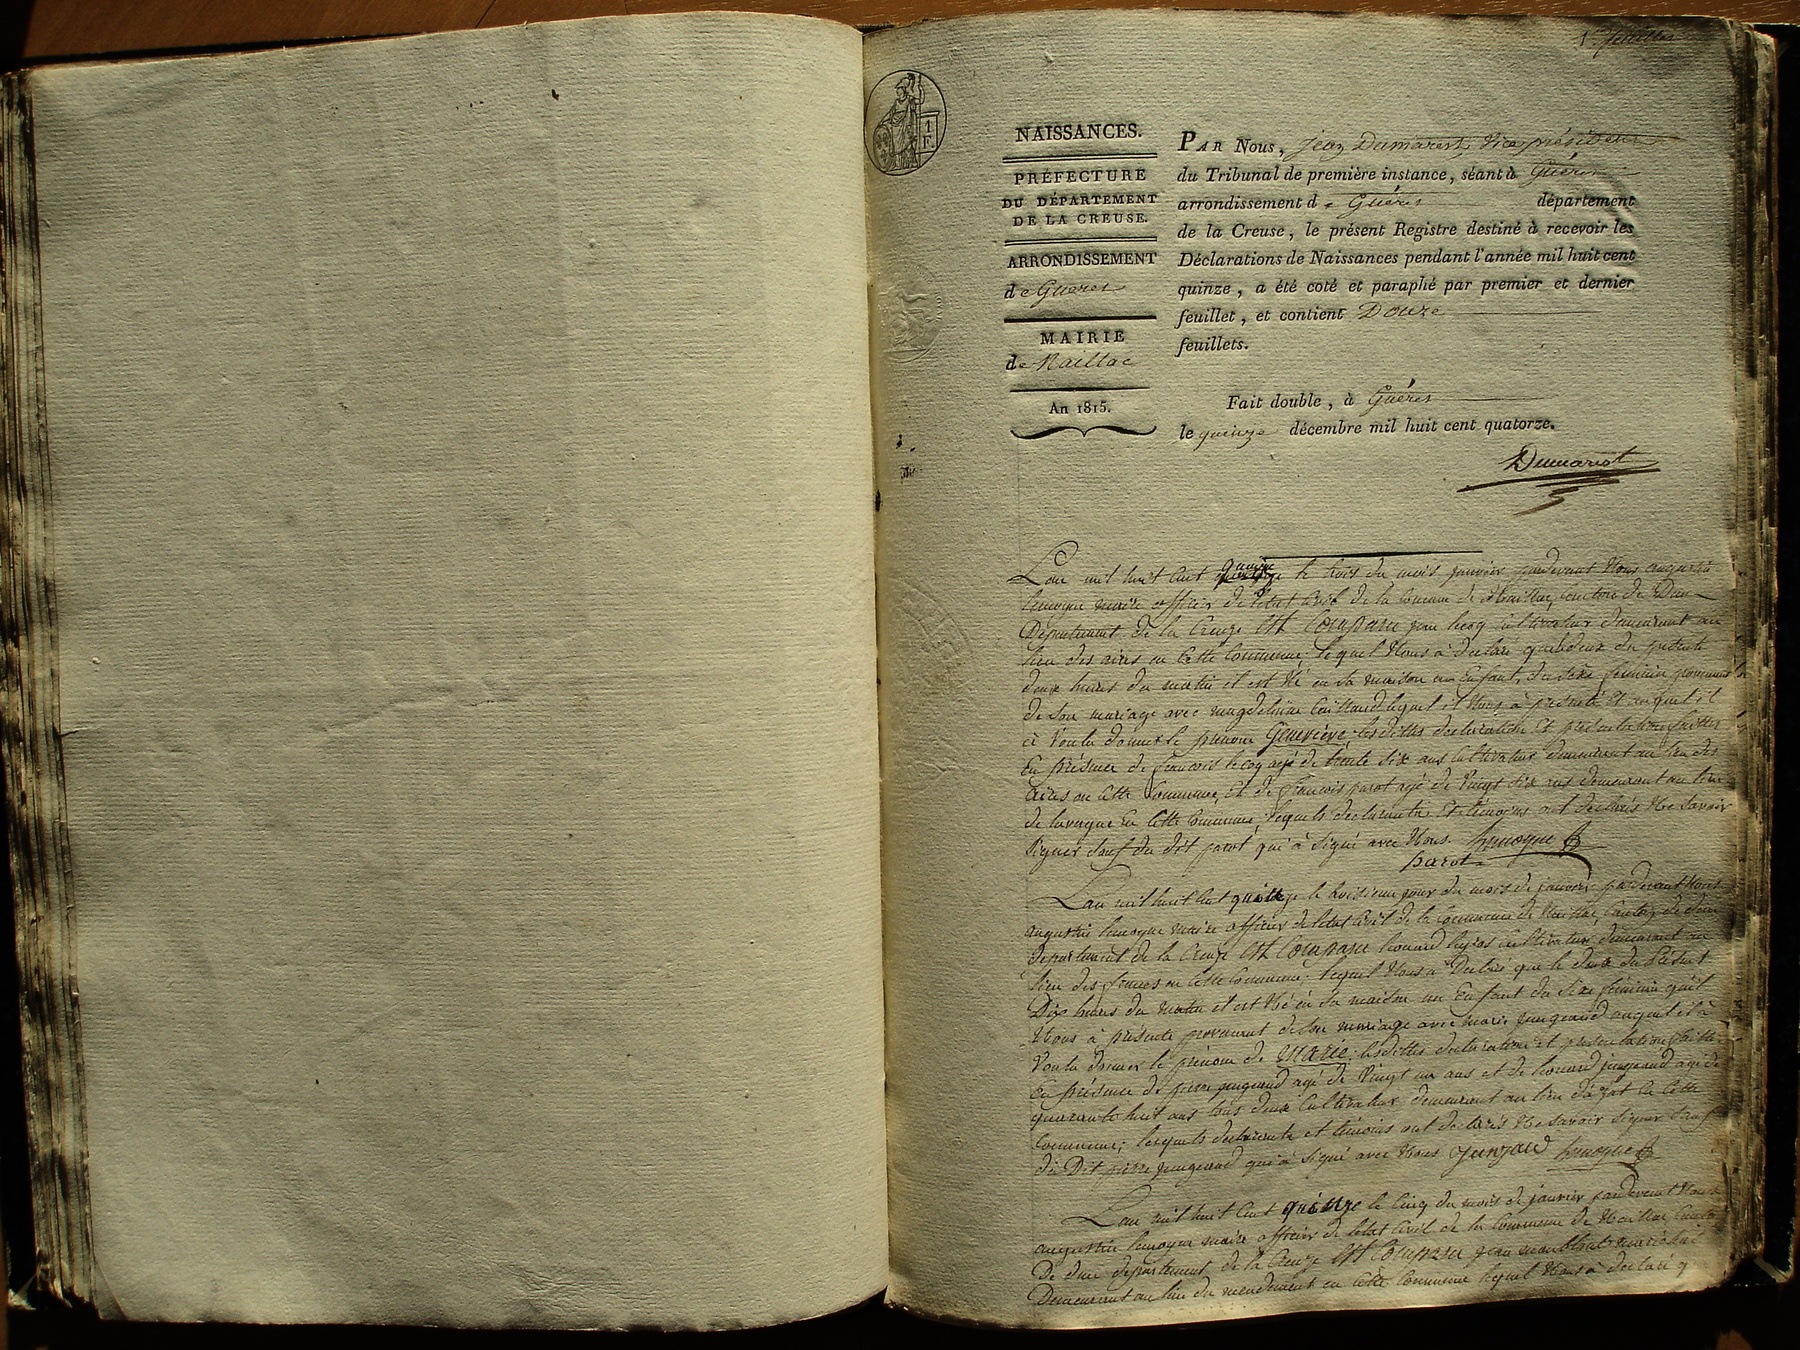 1er feuillet
1
F.
NAISSANCES.
PRÉFECTURE
DU DÉPARTEMENT
DE LA CREUSE.
ARRONDISSEMENT
de Gueret
MAIRIE
de Naillac
An 1815.
PAR Nous, jean Dumarest, Vice président
du Tribunal de première instance, séant à Guéret
arrondissement de Guéret département
de la Creuse, le présent Registre destiné à recevoir les
Déclarations de Naissances pendant l'année mil huit cent
quinze, a été coté et paraphé par premier et dernier
feuillet, et contient Douze
feuillets.
Fait double, à Guéret
le quinze décembre mil huit cent quatorze.
Dumarest
Lan mil huit cent quinze le trois du mois janvier pardevant Nous augustin
lemoyne maire officier de letat civil de la commune de Naillac, canton de Dun
Département de la Creuze est comparu jean lecoq cultivateur demeurant au
lieu des aires en cette commune, lequel Nous à declaré que deux du présent
deux heures du matin il est Né en sa maison un Enfant, du sexe feminin
de son mariage avec magdelaine lequel il Nous à présenté Et auquel il
à Voulu donner le prenom Geneviève lesdittes declaration Et presentation faittes
En présence de francois lecoq agé de trente six ans cultivateur demeurant au lieu des
aires en cette commune, et de francois parot agé de Vingt six ans demeurant au lieu
de en cette commune, lequels declarants Et temoins ont declarés Ne Savoir
Signer Sauf du dit parot qui à Signé avec Nous. lemoyne
parot
Lan mil huit cent quinze le troisieme jour du mois de janvier pardevant Nous
augustin lemoyne maire officier de letat civil de la Commune de Naillac, Canton de dun
departement de la Creuze est comparu leonard cultivateur demeurant au
lieu des en cette commune lequel Nous à Declaré que le deux du présent
Dix heures du matin il est Né en sa maison un Enfant du sexe feminin qu'il
Nous à présenté provenant de son mariage avec marie jungeaud auquel il à
Voulu donner le prénom de Marie. lesdittes declaration et presentation faitte
En présence de pierre jungeaud agé de Vingt un ans et de leonard jungeaud agé de
quarante huit ans tous deux Cultivateur demeurant au lieu d'azat en cette
Commune; lesquels declarants et temoins ont declarés Ne savoir signer Sauf
du Dit pierre jungeaud qui à Signé avec Nous lemoyne
Lan mil huit cent quinze le cinq du mois de janvier pardevant Nous
augustin lemoyne maire officier de letat civil de la Commune de Naillac Canton
De dun departement de la Creuze est comparu jean marechal
Demeurant au lieu du en cette Commune lequel Nous à declaré